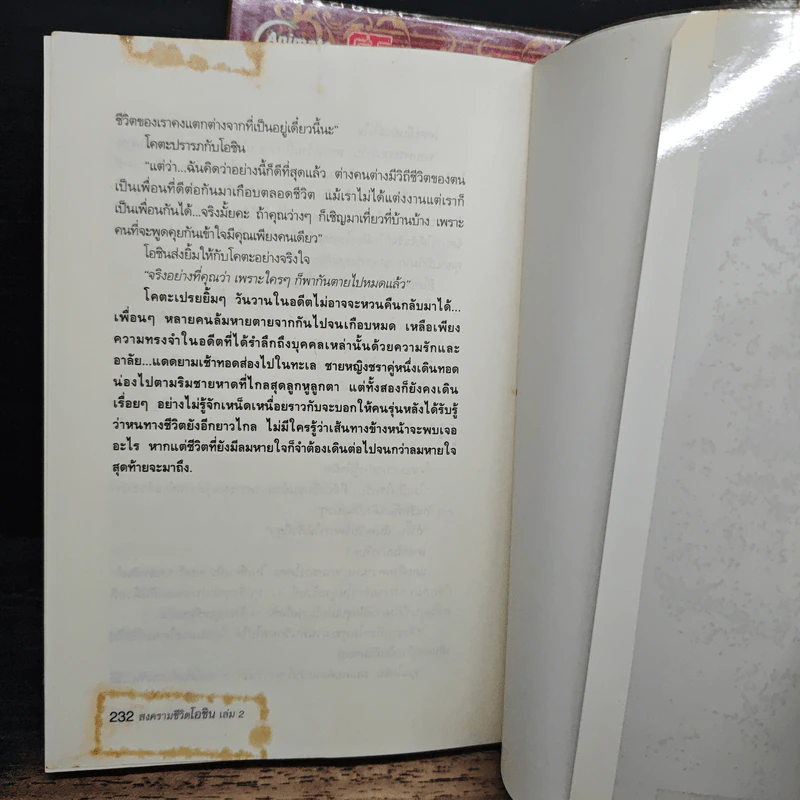 Animate
ชีวิตของเราคงแตกต่างจากที่เป็นอยู่เดี๋ยวนี้นะ"
โคตะปรารภกับโอชิน
"แต่ว่า...ฉันคิดว่าอย่างนี้ก็ดีที่สุดแล้ว ต่างคนต่างมีวิถีชีวิตของตน
เป็นเพื่อนที่ดีต่อกันมาเกือบตลอดชีวิต แม้เราไม่ได้แต่งงานแต่เราก็
เป็นเพื่อนกันได้...จริงมั้ยคะ ถ้าคุณว่างๆ ก็เชิญมาเที่ยวที่บ้านบ้าง เพราะ
คนที่จะพูดคุยกันเข้าใจมีคุณเพียงคนเดียว"
โอชินส่งยิ้มให้กับโคตะอย่างจริงใจ
"จริงอย่างที่คุณว่า เพราะใครๆ ก็พากันตายไปหมดแล้ว"
โคตะเปรยยิ้มๆ วันวานในอดีตไม่อาจจะหวนคืนกลับมาได้...
เพื่อนๆ หลายคนล้มหายตายจากกันไปจนเกือบหมด เหลือเพียง
ความทรงจำในอดีตที่ได้รำลึกถึงบุคคลเหล่านั้นด้วยความรักและ
อาลัย...แดดยามเช้าทอดส่องไปในทะเล ชายหญิงชราคู่หนึ่งเดินทอด
น่องไปตามริมชายหาดที่ไกลสุดลูกหูลูกตา แต่ทั้งสองก็ยังคงเดิน
เรื่อยๆ อย่างไม่รู้จักเหน็ดเหนื่อยราวกับจะบอกให้คนรุ่นหลังได้รับรู้
ว่าหนทางชีวิตยังอีกยาวไกล ไม่มีใครรู้ว่าเส้นทางข้างหน้าจะพบเจอ
อะไร หากแต่ชีวิตที่ยังมีลมหายใจก็จำต้องเดินต่อไปจนกว่าลมหายใจ
สุดท้ายจะมาถึง.
232 สงครามชีวิตโอชิน เล่ม 2